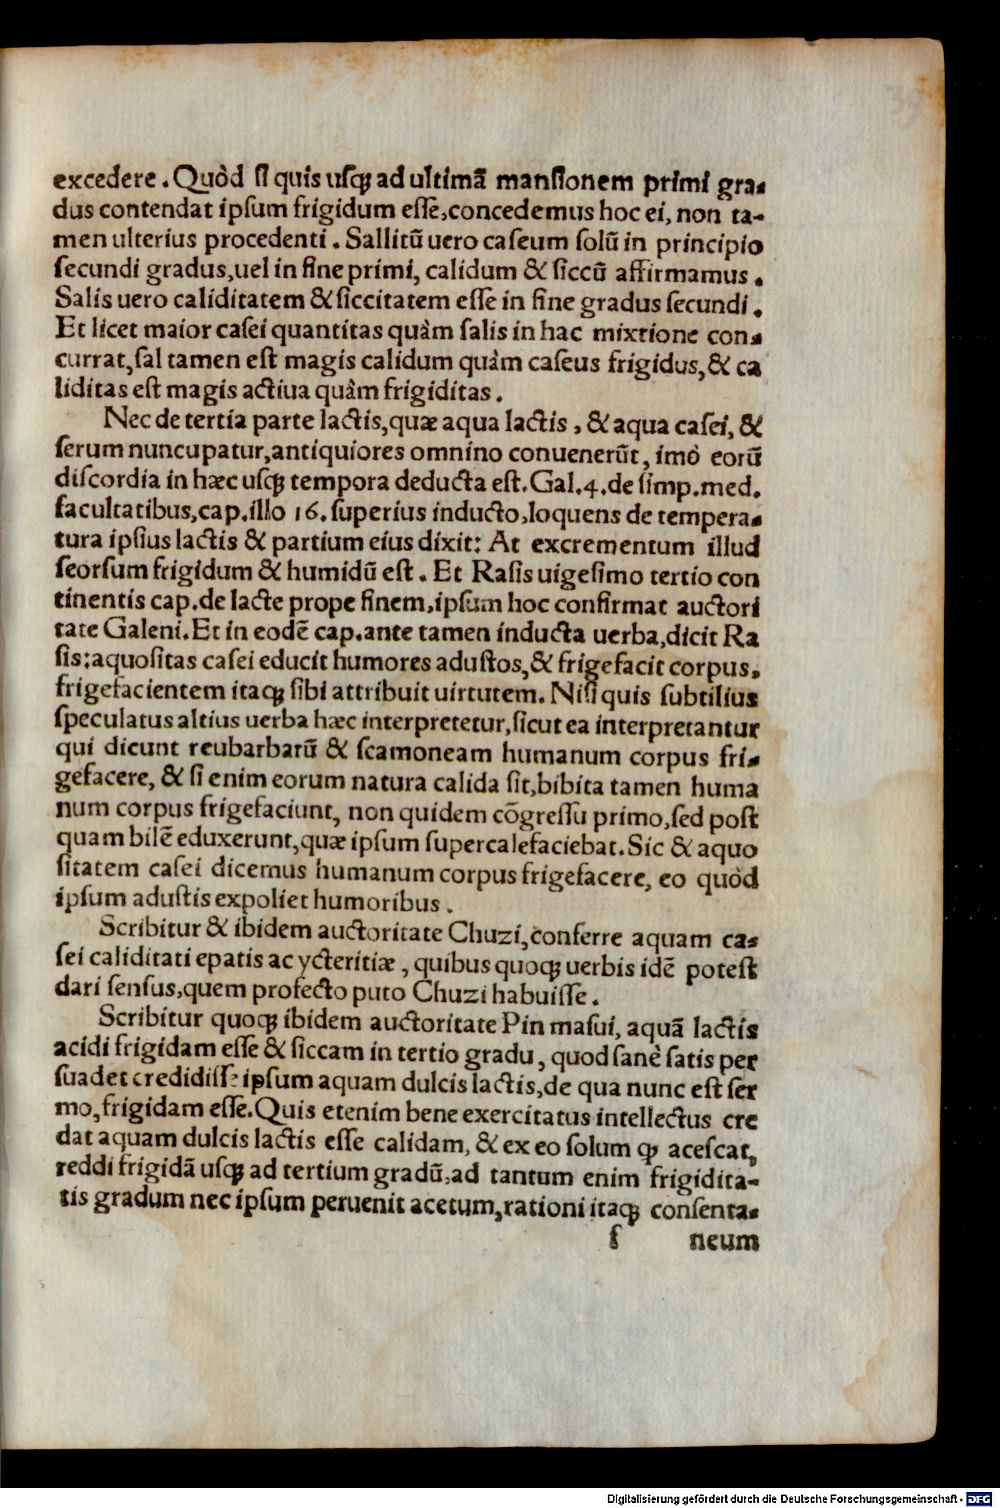 excedere. Quòd ſi quis uſq̃ ad ultimã manſionem primi gra-
dus contendat ipſum frigidum eſſe, concedemus hoc ei, non ta-
men ulterius procedenti. Sallitũ uero caſeum ſolũ in principio
ſecundi gradus, uel in fine primi, calidum & ſiccũ affirmamus.
Salis uero caliditatem & ſiccitatem eſſe in fine gradus ſecundi.
Et licet maior caſei quantitas quàm ſalis in hac mixtione con-
currat, ſal tamen eſt magis calidum quàm caſeus frigidus, & ca
liditas eſt magis actiua quàm frigiditas.
Nec de tertia parte lactis, quæ aqua lactis, & aqua caſei, &
ſerum nuncupatur, antiquiores omnino conuenerũt, imò eorũ
diſcordia in hæc uſq̃ tempora deducta eſt. Gal. 4. de ſimp. med.
facultatibus, cap. illo 16. ſuperius inducto, loquens de tempera-
tura ipſius lactis & partium eius dixit: At excrementum illud
ſeorſum frigidum & humidũ eſt. Et Raſis uigeſimo tertio con
tinentis cap. de lacte prope finem, ipſum hoc confirmat auctori
tate Galeni. Et in eodẽ cap. ante tamen inducta uerba, dicit Ra
ſis: aquoſitas caſei educit humores aduſtos, & frigefacit corpus,
frigefacientem itaq̃ ſibi attribuit uirtutem. Niſi quis ſubtilius
ſpeculatus altius uerba hæc interpretetur, ſicut ea interpretantur
qui dicunt reubarbarũ & ſcamoneam humanum corpus fri-
gefacere, & ſi enim eorum natura calida ſit, bibita tamen huma
num corpus frigefaciunt, non quidem cõgreſſu primo, ſed poſt
quam bilẽ eduxerunt, quæ ipſum ſupercalefaciebat. Sic & aquo
ſitatem caſei dicemus humanum corpus frigefacere, eo quòd
ipſum aduſtis expoliet humoribus.
Scribitur & ibidem auctoritate Chuzi, conferre aquam ca-
ſei caliditati epatis ac ycteritiæ, quibus quoq̃ uerbis idẽ poteſt
dari ſenſus, quem profecto puto Chuzi habuiſſe.
Scribitur quoq̃ ibidem auctoritate Pin maſui, aquã lactis
acidi frigidam eſſe & ſiccam in tertio gradu, quod ſanè ſatis per
ſuadet credidiſſe ipſum aquam dulcis lactis, de qua nunc eſt ſer
mo, frigidam eſſe. Quis etenim bene exercitatus intellectus cre
dat aquam dulcis lactis eſſe calidam, & ex eo ſolum ꝙ aceſcat,
reddi frigidã uſq̃ ad tertium gradũ, ad tantum enim frigidita-
tis gradum nec ipſum peruenit acetum, rationi itaq̃ conſenta-
f neum
Digitalisierung gefördert durch die Deutsche Forschungsgemeinschaft - DFG